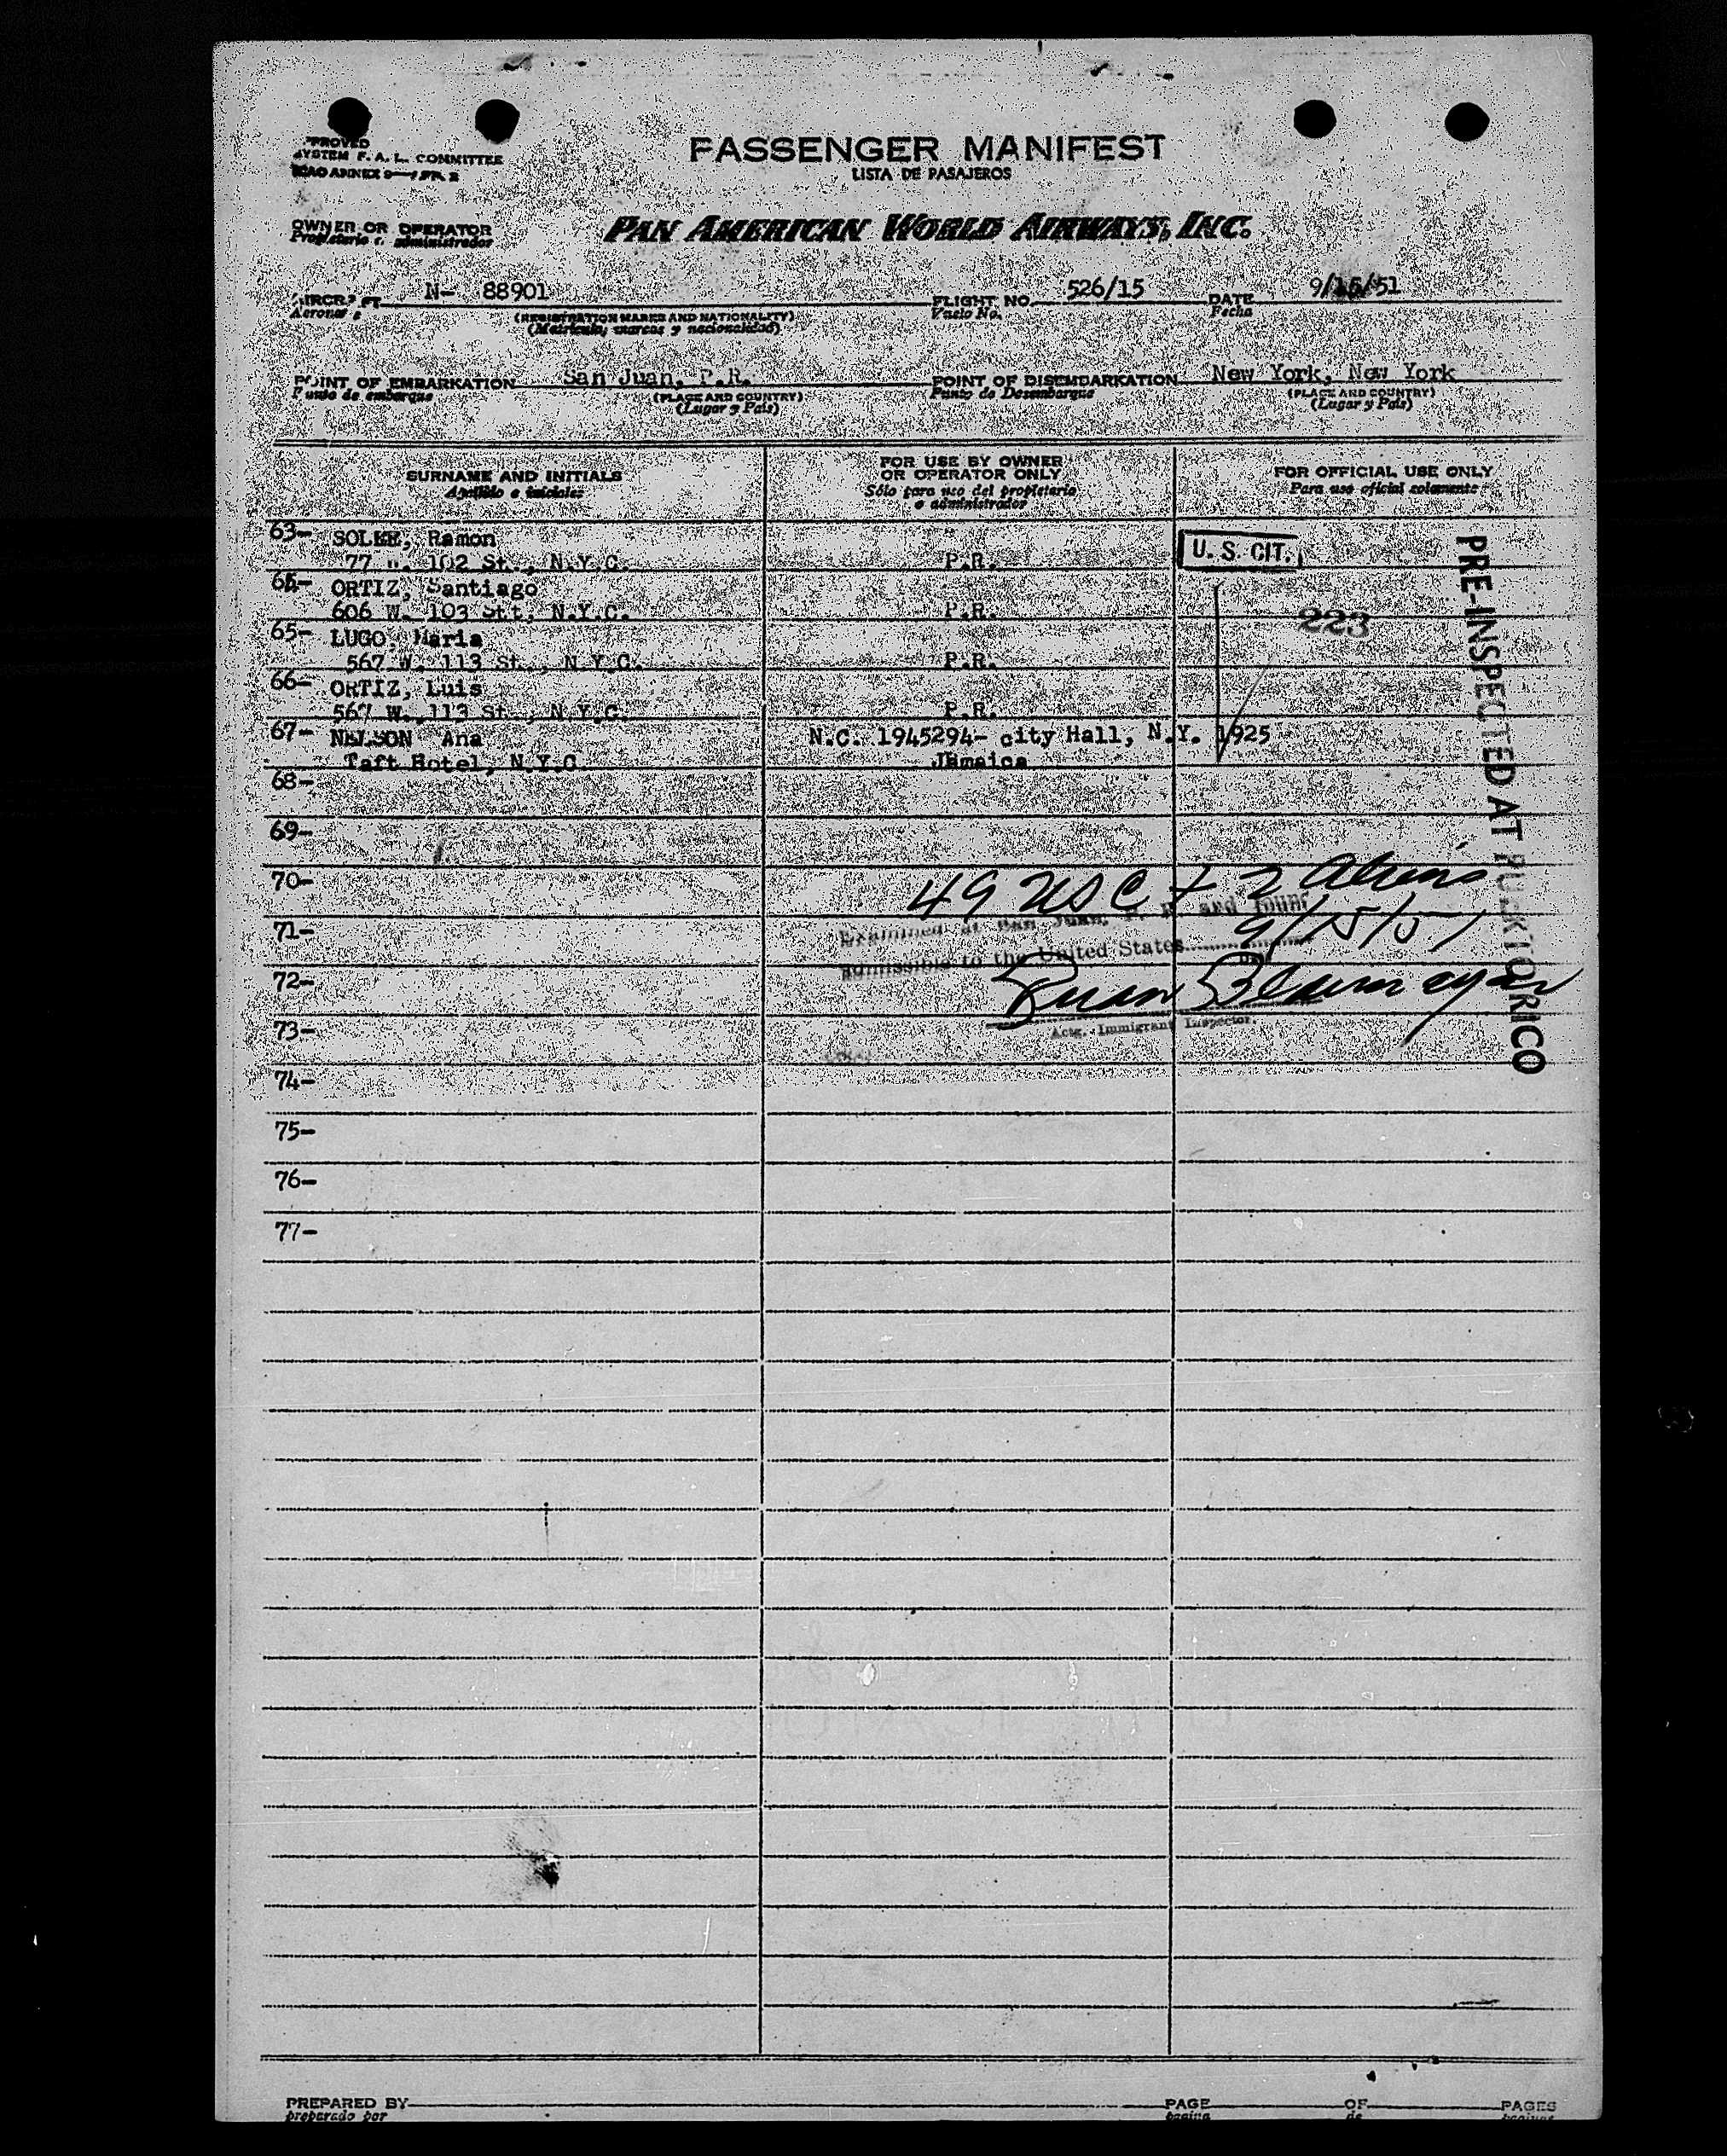 PROVED
SYSTEM F. A. L. COMMITTEE
ICAO ANNEX 9
PASSENGER MANIFEST
LISTA DE PASAJEROS
OWNER OR OPERATOR
Propietario o administrador
PAN AMERICAN WORLD AIRWAYS, INC.
AIRCRAFT N- 88901
Aeronave
(REGISTRATION MARKS AND NATIONALITY)
(Matricula, marcas y nacionalidad)
FLIGHT NO. 526/15
Vuelo No.
DATE 9/15/51
Fecha
POINT OF EMBARKATION San Juan, P.R.
Punto de embarque
(PLACE AND COUNTRY)
(Lugar y País)
POINT OF DISEMBARKATION New York, New York
Punto de Desembarque
(PLACE AND COUNTRY)
(Lugar y País)
SURNAME AND INITIALS
Apellido e iniciales
FOR USE BY OWNER
OR OPERATOR ONLY
Sólo para uso del propietario
o administrador
FOR OFFICIAL USE ONLY
Para uso oficial solamente
63- SOLER, Ramon
77 W. 102 St., N.Y.C. P.R.
U. S. CIT.
64- ORTIZ, Santiago
606 W. 103 Stt, N.Y.C. P.R.
223
65- LUGO, Maria
567 W. 113 St., N.Y.C. P.R.
66- ORTIZ, Luis
567 W. 113 St., N.Y.C. P.R.
67- NELSON Ana N.C. 1945294- city Hall, N.Y. 1925
Taft Hotel, N.Y.C. Jamaica
PRE-INSPECTED AT PUERTO RICO
68-
69-
70-
49 USC + 2 Aliens
71-
Examined at San Juan, P. R. and found
9/15/51
admissible to the United States
72-
Juan
73-
Actg. Immigrant Inspector.
74-
75-
76-
77-
PREPARED BY
preparado por
PAGE
pagina
OF
de
PAGES
paginas